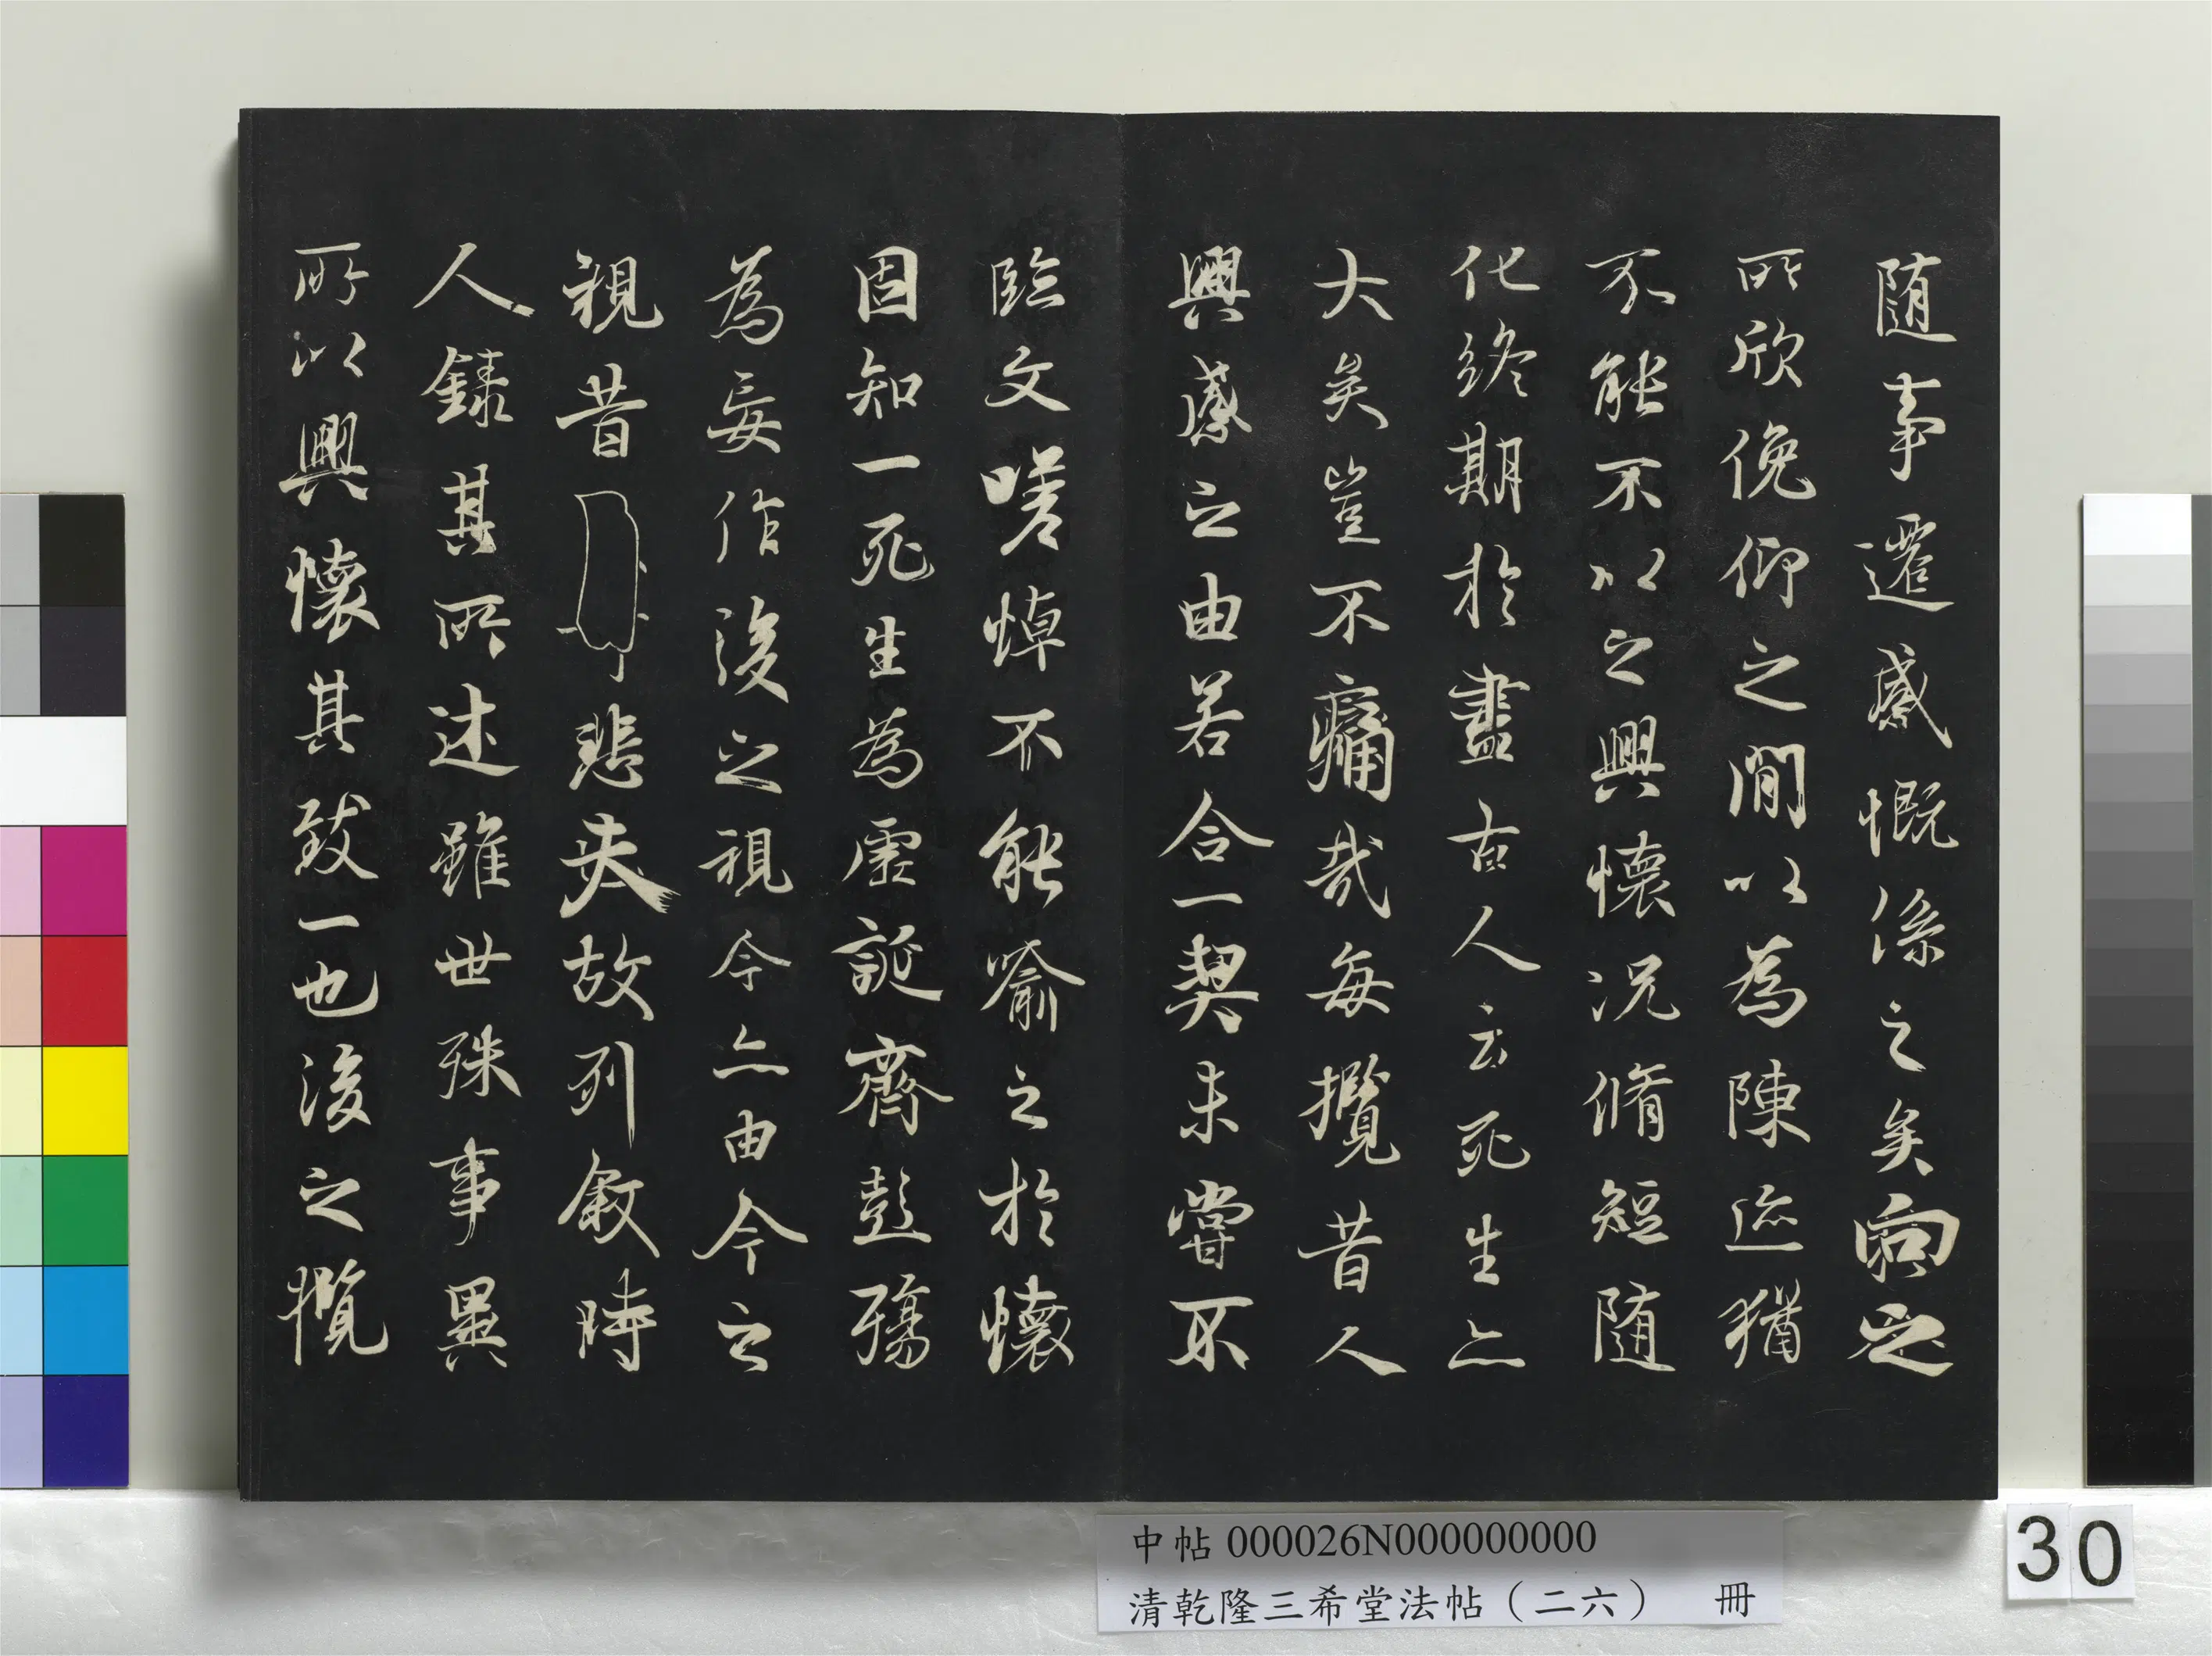 随事遷感慨係之矣向之
所欣俛仰之閒以為陳迹猶
不能不以之興懷況脩短随
化終期於盡古人云死生亦
大矣豈不痛哉每攬昔人
興感之由若合一契未甞不
臨文嗟悼不能喻之於懷
固知一死生為虛誕齊彭殤
為妄作後之視今亦由今之
視昔悲夫故列敘時
人錄其所述雖世殊事異
所以興懷其致一也後之攬
中帖 000026N000000000
清乾隆三希堂法帖（二六） 冊
30